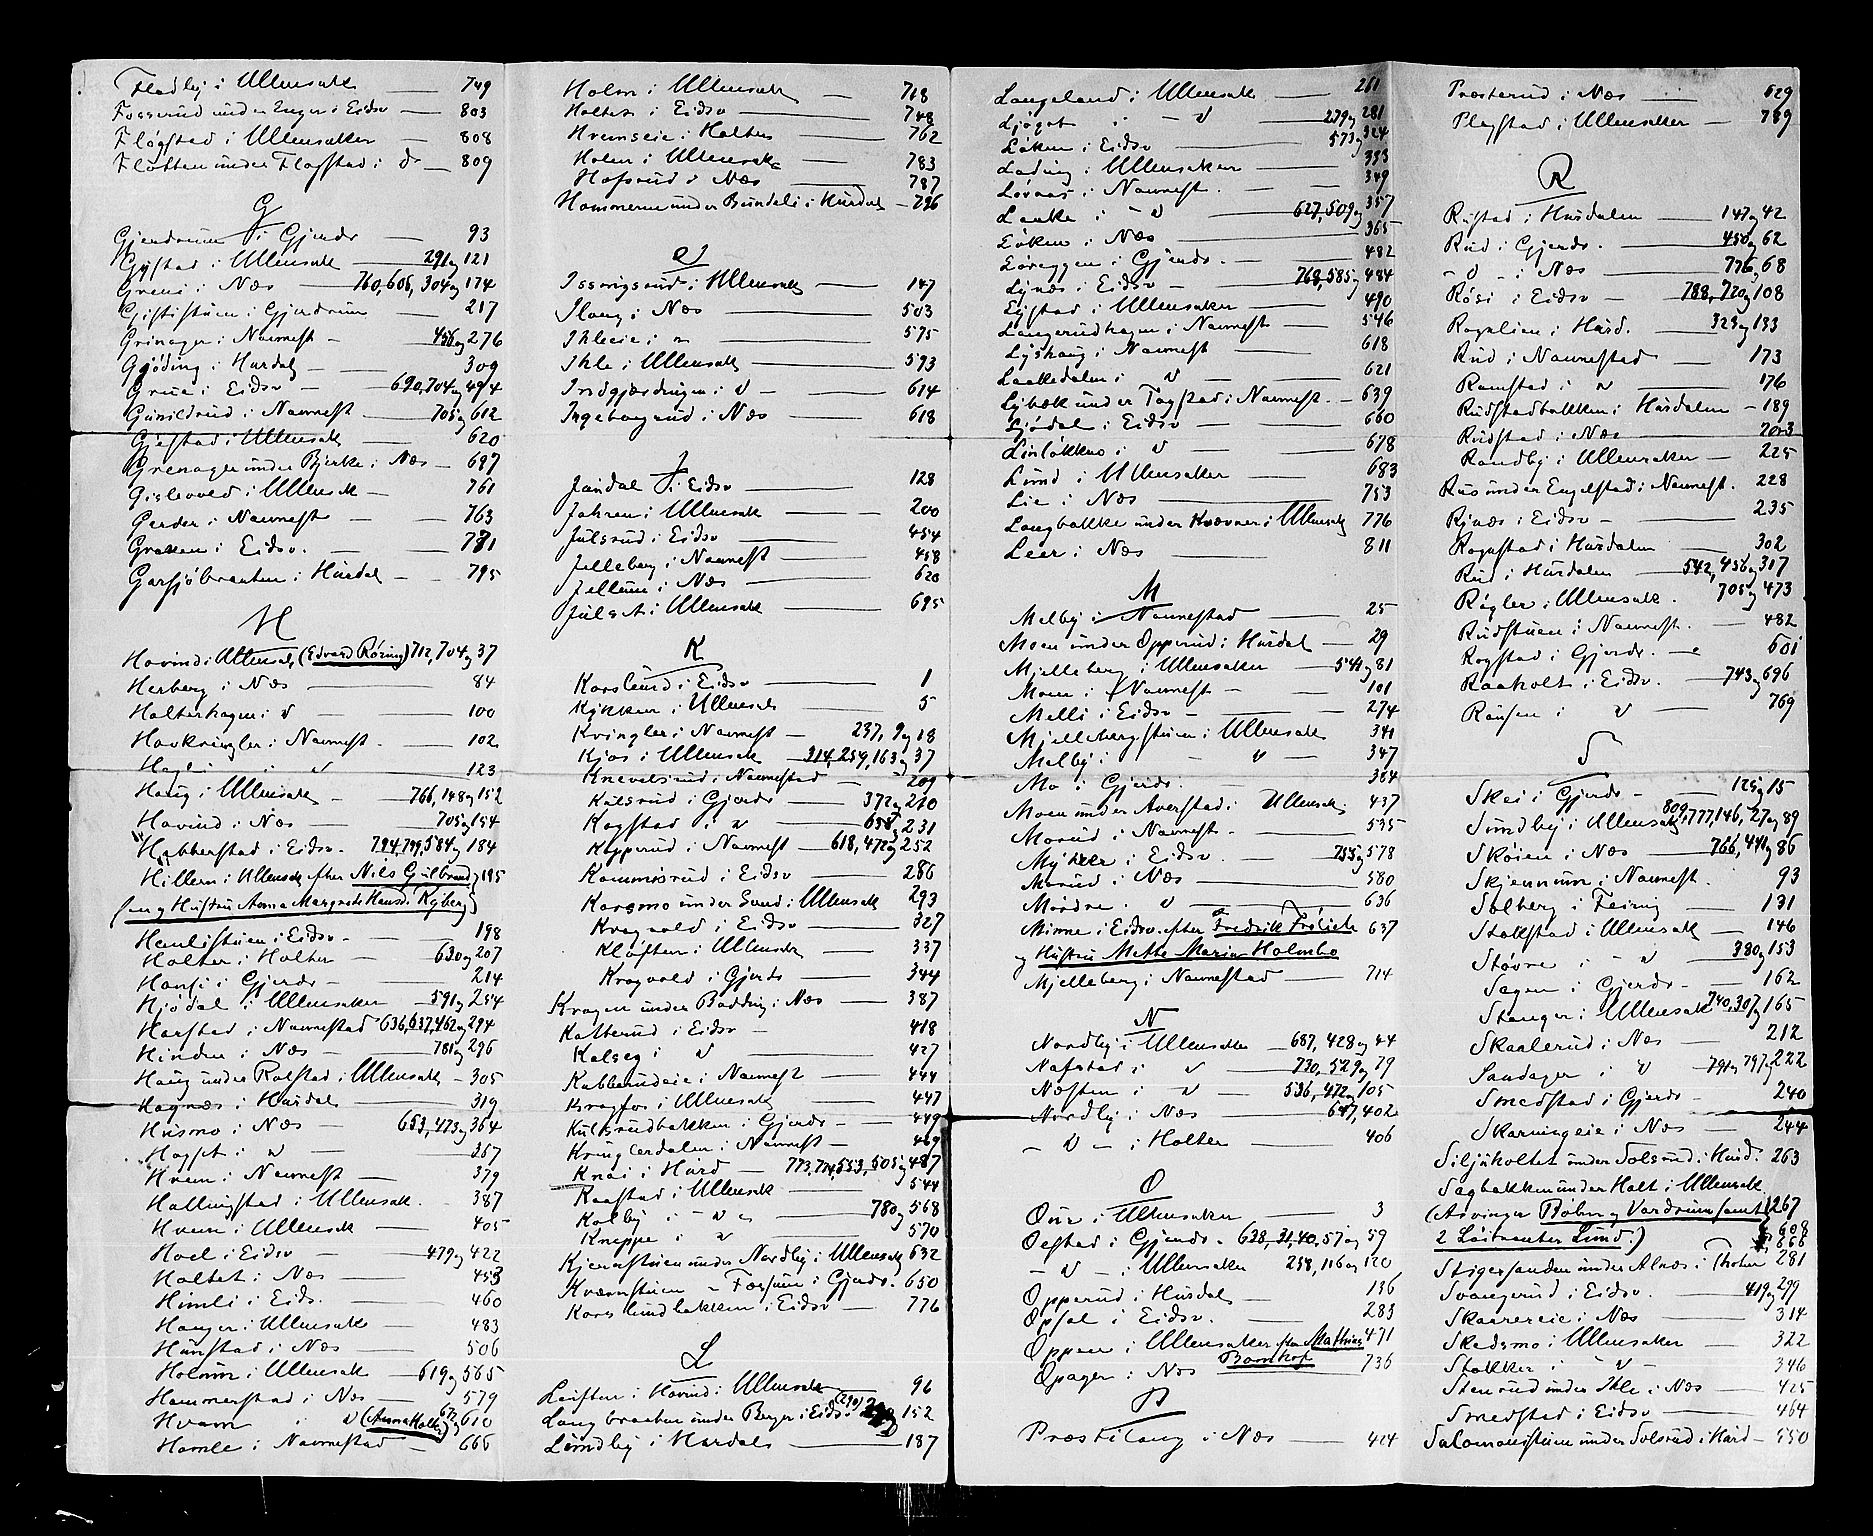 Fladby i Ullensak — 749
Fosserud under Enger i Eidsv — 803
Fløgstad i Ullensaker — 808
Fløtten under Flogstad i do — 809
G
Gjendrum i Gjerdr — 93
Gystad i Ullensak — 291 og 121
Greni i Næs — 760, 606, 304 og 174
Gististuen i Gjerdrum — 217
Grinager i Nannest — 456 og 276
Gjøding i Hurdal — 309
Grue i Eidsv — 690, 704 og 494
Gunildrud i Nannest — 705 og 612
Gjestad i Ullensak — 620
Grenager under Bjerke i Næs — 697
Gislevold i Ullensak — 761
Gerder i Nannest — 763
i Eidsv. — 781
Garsjøbraaten i Hurdal — 795
H
Hovind i Ullensak (Edvard Röring) 712, 704 og 37
Herberg i Næs — 84
Holterhagen i d — 100
Havkringler i Nannest. — 102
i d — 123
Haug i Ullensak — 766, 148 og 152
Hovind i Næs — 705 og 154
Habberstad i Eidsv. 794, 799, 584 og 184
Hillern i Ullensak efter Nils Gulbrand 195
sen og Hustru Anna Margrete Hansd. Kyberg
Henlistuen i Eidsv. — 198
Holter i Holter — 630 og 207
i Gjerdr — 214
Hjødal i Ullensaker — 591 og 254
Harstad i Nannestad 636, 637, 462 og 294
Hinden i Næs — 781 og 296
Haug under Rolstad i Ullensak — 305
Hagnæs i Hurdal — 319
Husmo i Næs — 653, 473 og 364
i d — 367
Hvem i Nannest — 379
Hallingstad i Ullensak. — 387
Hvem i Ullensak — 405
Hoel i Eidsv — 479 og 422
Holtet i Næs — 453
Himli i Eids. — 460
Hauger i Ullensak — 483
Hunstad i Næs — 506
Holum i Ullensak — 619 og 565
Hammerstad i Næs — 579
Hvam i d (Anna Holter) 672 og 610
Homle i Nannestad — 666
Holm i Ullensak — 718
Holter i Eidsv — 748
Hvemseie i Holter — 762
Holm i Ullensak — 783
Hofsrud i Næs — 787
Hammeren under Bundeli i Hurdal — 796
I
i Ullensak — 147
i Næs — 503
Ihleeie i — 575
Ihle i Ullensak — 593
Indgjærdingen i d — 614
Ingeborgrud i Næs — 618
J
Jøndal i Eidsv — 128
Jahren i Ullensak — 200
Julsrud i Eidsv — 454
Jelleberg i Nannest — 458
Jellum i Næs — 620
i Ullensak — 695
K
Korslund i Eidsv — 1
Kjkken i Ullensak — 5
Kringler i Nannest — 237, 9 og 18
Kjos i Ullensak — 314, 259, 163 og 37
Knevelsrud i Nannestad — 209
Kulsrud i Gjerdr — 372 og 210
Kogstad i d — 658 og 231
Kopperud i Nannest — 618, 472 og 252
Kommisrud i Eidsv — 286
Korsmo under Sund i Ullensak 293
Krogvold i Eidsv — 327
Kløften i Ullensak — 337
Krogvold i Gjerdr — 344
Krogen under Badding i Næs — 387
Katterud i Eidsv — 418
Kolseg i d — 427
Kabberudeie i Nannest — 444
Krogfos i Ullensak — 447
Kulsrudbakken i Gjerdr — 449
Kringlerdalen i Nannest — 469
Knai i Hurd — 773, 774, 553, 505 og 487
Kaastad i Ullensak — 544
Kolby i — 780 og 568
Kneppe i d — 570
Kjernstuen under Nordby i Ullensak 632
Kværnstuen — Forsum i Gjerdr. 650
Korslundbakken i Eidsv — 776
L
Leiksten i Hovind i Ullensak — 96
Langbraaten under Berger i Eids. (290) 152
Lundby i Hurdal — 187
Langeland i Ullensak — 261
Ljøgot — d — 279 og 281
Løken i Eidsv — 573 og 324
Lading i Ullensaker — 333
Løvaas i Nannest. — 349
Laake i — d — 627, 509 og 357
Løken i Næs — 365
Løreggen i Gjerdr. — 482
Lynæs i Eidsv — 768, 585 og 484
Lystad i Ullensaker — 490
Langerudhagen i Nannest — 546
Lyshaug i Nannest — 618
Laakedalen i d — 621
Lybæk under Togstad i Nannest. — 639
Ljødal i Eidsv — 660
Linløkken i d — 678
Lund i Ullensaker — 683
Lie i Næs — 753
Langbakke under Kværner i Ullensak 776
Leer i Næs — 811
M
Melby i Nannestad — 25
Moen under Opperud i Hurdal — 29
Mjelleberg i Ullensaker — 541 og 81
Moen i Nannest — 101
Melli i Eidsv — 274
Mjellebergstuen i Ullensak 341
Melby i — " 347
Mo i Gjerdr. — 364
Moen under Averstad i Ullensak. 437
Morud i Nannest. — 535
i Eidsv — 755 og 578
Morud i Næs — 580
Mordre. d — 636
Minne i Eidsv. efter Fredrik Frölich 637
og Hustru Mette Maria Holmbo
Mjelleberg i Nannestad — 714
N
Nordby i Ullensaker — 687, 428 og 44
Nafstad i d — 730, 529 og 79
Næsten i d — 536, 472 og 105
Nordby i Næs — 647, 402
— d — i Holter — 406
O
i Ullensaker — 3
Oestad i Gjerdr. 638, 31, 40, 57 og 59
— d — i Ullensaker 238, 116 og 120
Opperud i Hurdal — 136
Opsal i Eidsv. — 283
Oppen i Ullensaker efter Mathias 471
Bomhof
Opager i Næs — 736
P
Præstelang i Næs — 424
Præsterud i Næs — 629
Plogstad i Ullensaker — 789
R
Rustad i Hurdalen — 147 og 42
Rud i Gjerdr. — 450 og 62
— d — i Næs — 776 og 68
Røsi i Eidsv — 788, 720 og 108
Rognlien i Hurd. — 323 og 133
Rud i Nannestad — 173
Ramstad i d — 176
Rudstadbakken i Hurdalen — 189
Rudstad i Næs — 203
Randby i Ullensaker — 225
Rus under Engelstad i Nannest. 228
Rjnæs i Eidsv — 235
Rognstad i Hurdalen — 302
Rud i Hurdalen — 542, 456 og 317
Rögler i Ullensak. 705 og 473
Rudstuen i Nannest. — 482
Rogstad i Gjerdr. — 601
Raaholt i Eidsv. — 743 og 696
i d — 769
S
Skei i Gjerdr — 125 og 15
Sundby i Ullensak 809, 777, 146, 27 og 89
Skøien i Næs — 766, 441 og 86
Skjennum i Nannest. 93
Solberg i Feiring — 131
Stokstad i Ullensak — 146
Støvre i — d — 380 og 153
Sogn i Gjerdr. — 162
Stanger i Ullensak 740, 307 og 165
Skaalerud i Næs — 212
Sandager i d 794 og 797 og 222
Smedstad i Gjerdr — 240
Skarningeie i Næs — 244
Siljuholtet under Solsrud i Hurd. 263
Sagbakken under Holt i Ullensak
(Arvinger Bohn og Vardrum samt 267
2 Løitnanter Lund.) og 608
666
Stigersanden under Alnæs i Thoten 281
Svangerud i Eidsv. — 419 og 299
Skaarereie i Næs — 314
Skedsmo i Ullensaker — 322
Stokker i — d — 346
Stenrud under Ihle i Næs — 425
Smedstad i Eidsv — 464
Salomonstuen under Solsrud i Hurd — 550